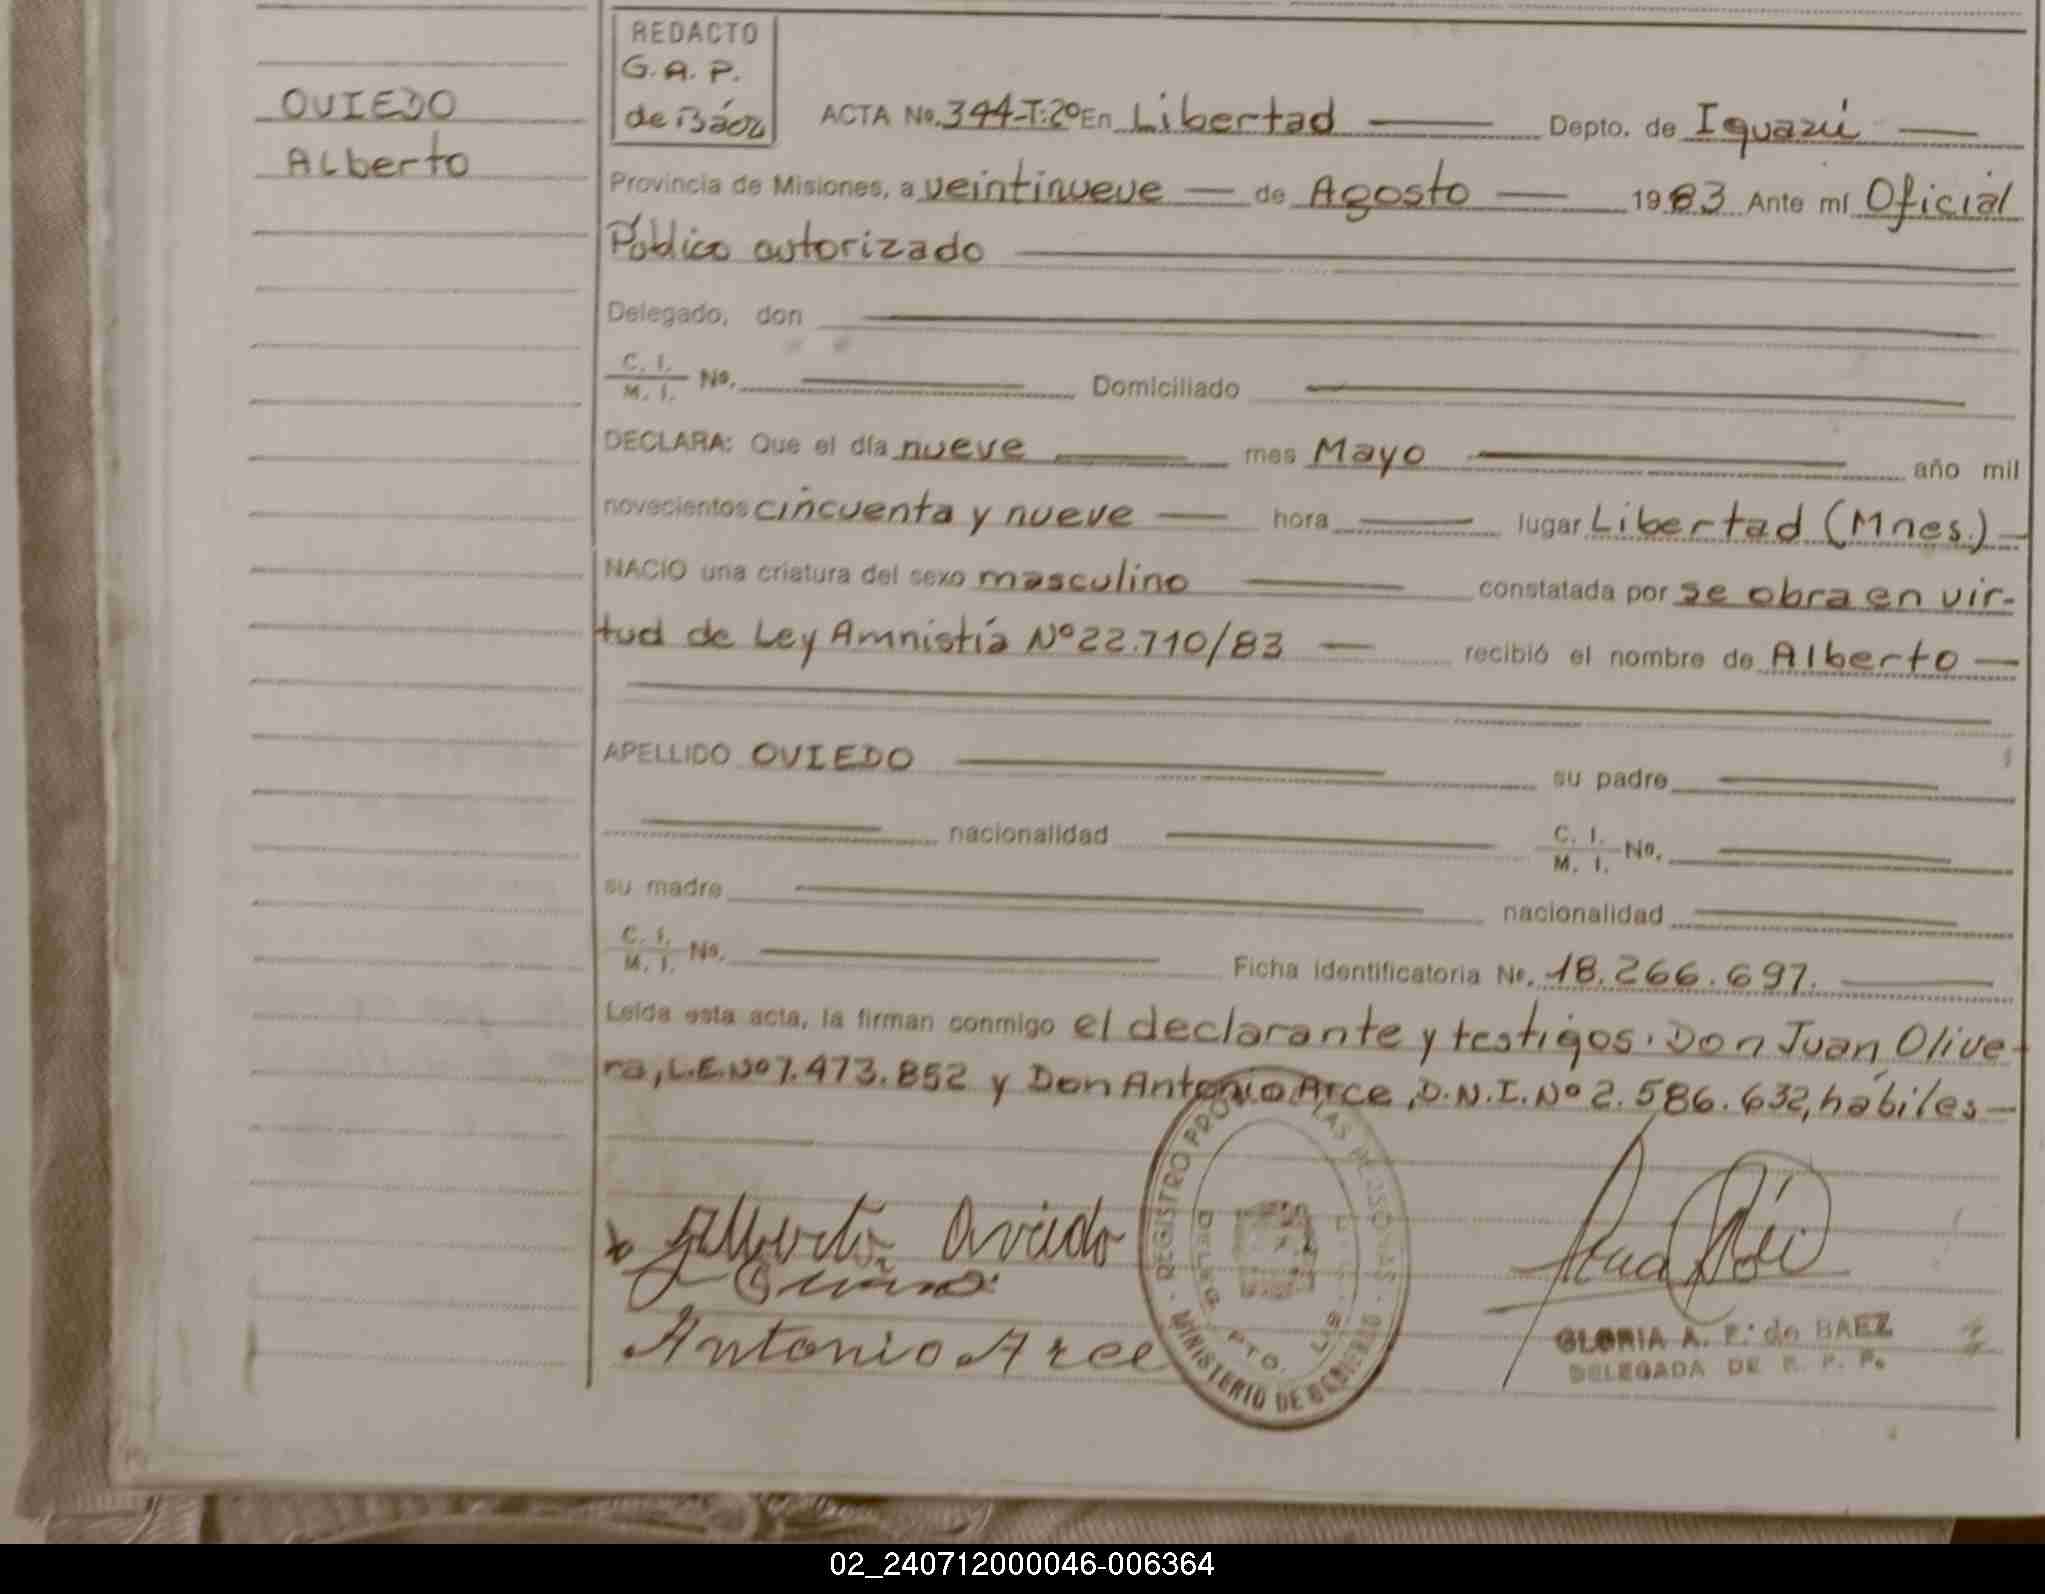 REDACTO
G. A. P.
de Báez
OVIEDO
Alberto
ACTA No. 344-T:2º En Libertad Depto. de Iguazú
Provincia de Misiones, a veintinueve de Agosto 1983 Ante mí Oficial
Público autorizado
Delegado, don
C. I.
M. I. No. Domiciliado
DECLARA: Que el día nueve mes Mayo año mil
novecientos cincuenta y nueve hora lugar Libertad (Mnes.)
NACIO una criatura del sexo masculino constatada por se obra en vir-
tud de Ley Amnistía Nº 22.710/83 recibió el nombre de Alberto
APELLIDO OVIEDO su padre
nacionalidad C. I.
M. I. No.
su madre nacionalidad
C. I.
M. I. No. Ficha identificatoria No. 18.266.697.
Leída esta acta, la firman conmigo el declarante y testigos: Don Juan Olive-
ra, L.E. Nº 7.473.852 y Don Antonio Arce, D.N.I. Nº 2.586.632, hábiles
Alberto Oviedo
Antonio Arce
REGISTRO DE LAS PERSONAS
MINISTERIO DE GOBIERNO
GLORIA A. P. de BAEZ
DELEGADA DE R. P. P.
02_240712000046-006364